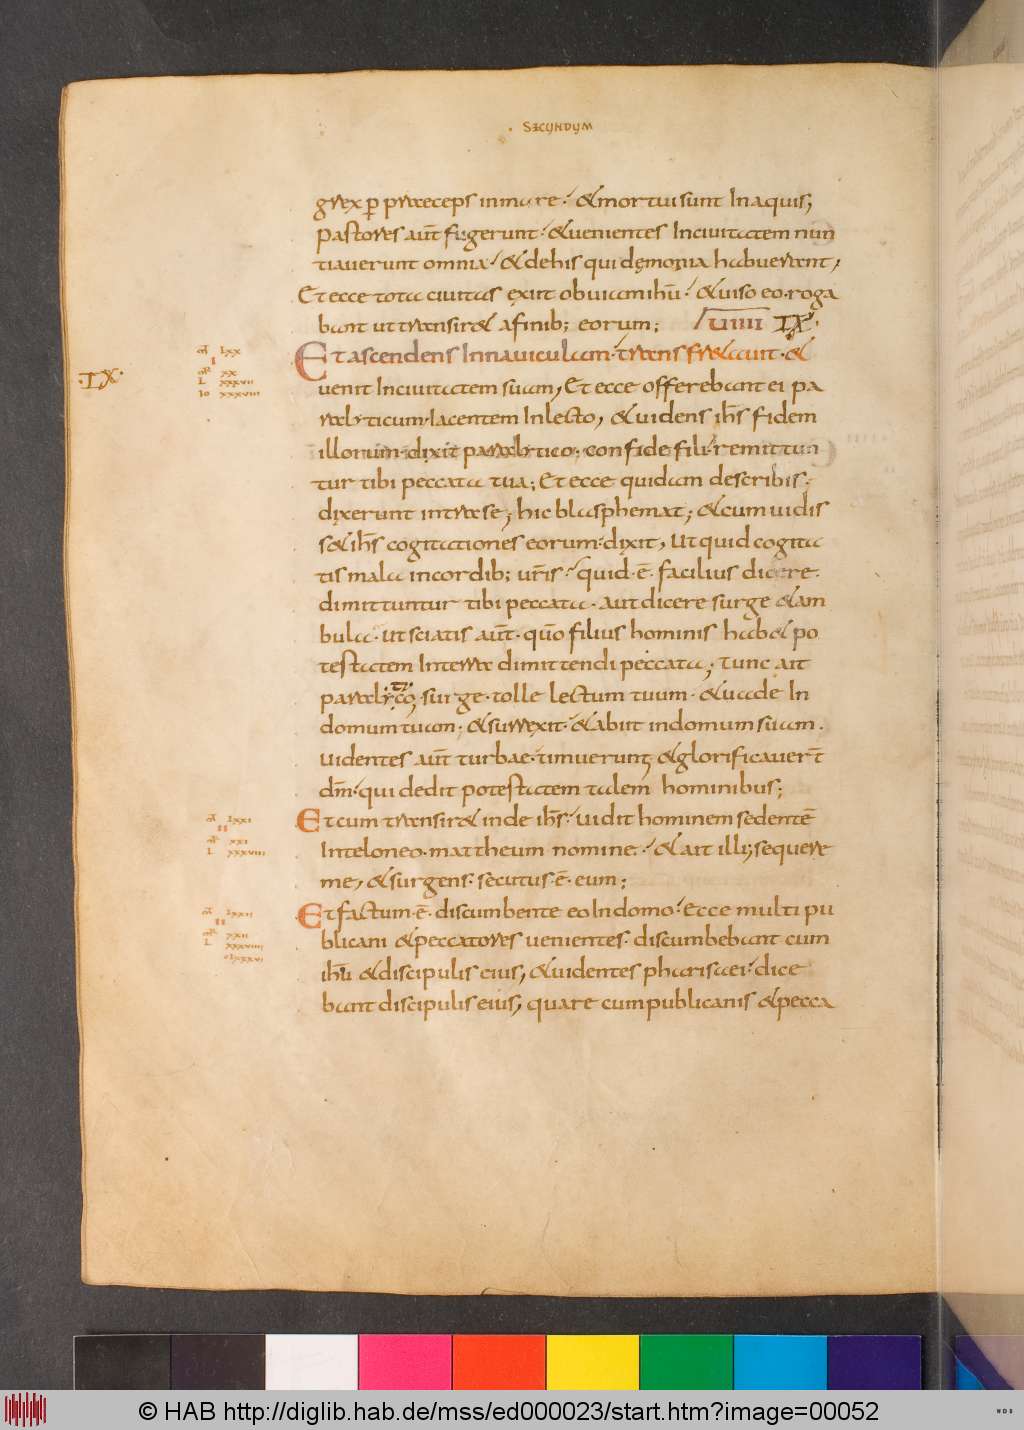 SECUNDUM
grex p̄ praeceps in mare. & mortui sunt In aquis;
Pastores aūt fugerunt. & uenientes In ciuitatem nun
tiauerunt omnia. & de his qui demonia habuerant,
Et ecce tota ciuitas exiit obuiam ihū. & uiso eo. roga
bant ut transir& a finib; eorum; UIIII IX
Et ascendens In nauiculam. transfr&auit. &
·IX·
m̄ lxx
I
mR xx
L xxxvii
Io xxxviii
uenit In ciuitatem suam, Et ecce offerebant ei pa
ralyticum. Iacentem In lecto, & uidens ih̄s fidem
illorum. dixit paralytico; confide fili. remittun
tur tibi peccata tua; Et ecce quidam de scribis.
dixerunt intra se; hic blasphemat; & cum uidis
s& ih̄s cogitationes eorum. dixit, Ut quid cogita
tis mala in cordib; ur̄is. quid .ē. facilius dicere.
dimittuntur tibi peccata. aut dicere surge & am
bula. Ut sciatis aūt. qūo filius hominis hab& po
testatem In terra dimittendi peccata; Tunc ait
paralyco. surge. tolle lectum tuum. & uade In
domum tuam. & surrexit. & abiit in domum suam.
Uidentes aūt turbae. timuerunt & glorificauer̄t
dm̄. qui dedit potestatem talem hominibus;
m̄ lxxi
II
mR xxi
L xxxviii
Et cum transir& inde ih̄s. uidit hominem sedentē
In teloneo. mattheum nomine. & ait illi; sequere
me, & surgens. secutus .ē. eum;
m̄ lxxii
II
mR xxii
L xxxviiii
clxxxvi
Et factum .ē. discumbente eo In domo. Ecce multi pu
blicani & peccatores uenientes. discumbebant cum
ihū & discipulis eius, & uidentes pharisaei. dice
bant discipulis eius, quare cum publicanis & pecca
© HAB http://diglib.hab.de/mss/ed000023/start.htm?image=00052